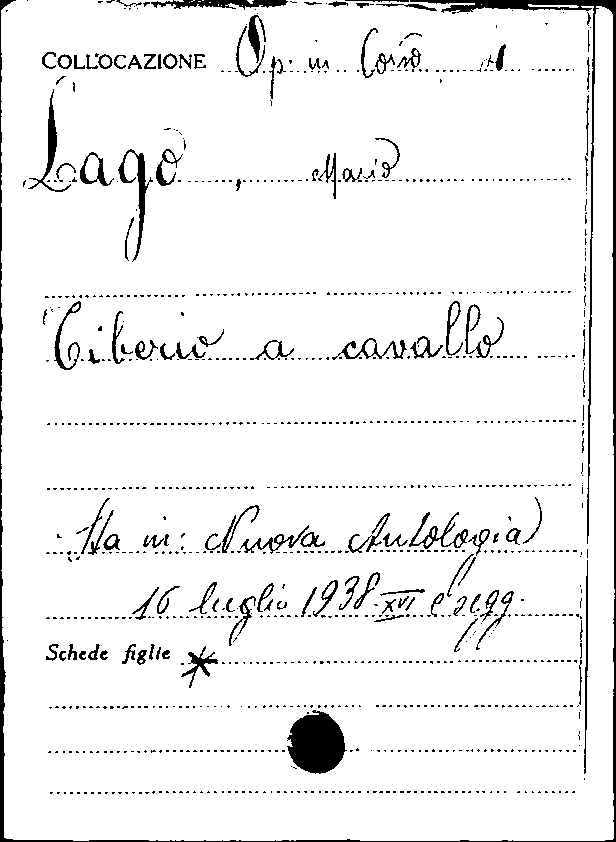 COLLOCAZIONE Op. in Corso
Lago, Mario
Tiberio a cavallo
Sta in: Nuova Antologia
16 luglio 1938-XVI e segg.
Schede figlie *